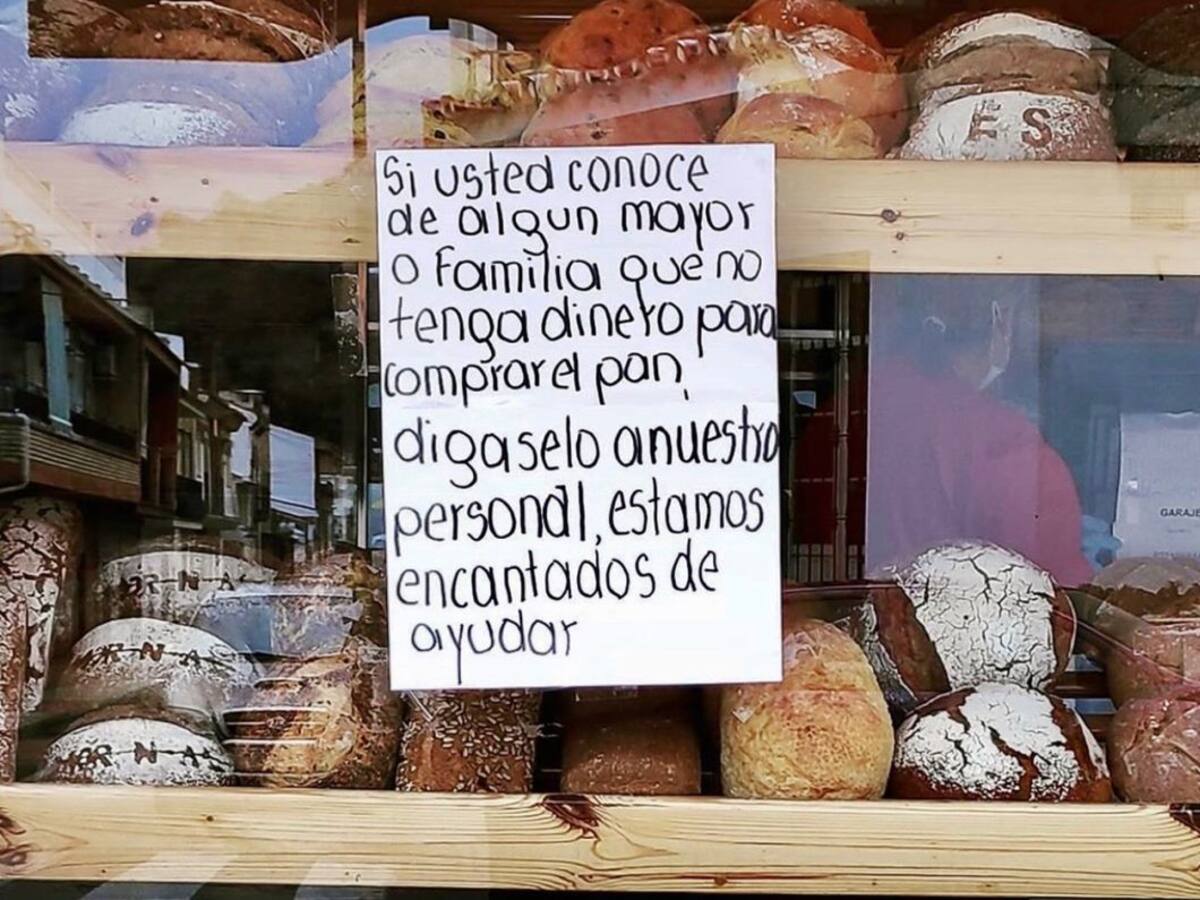 ES
Si usted conoce
de algun mayor
o Familia que no
tenga dinero para
comprar el pan,
digaselo a nuestro
personal, estamos
encantados de
ayudar
GARAJE